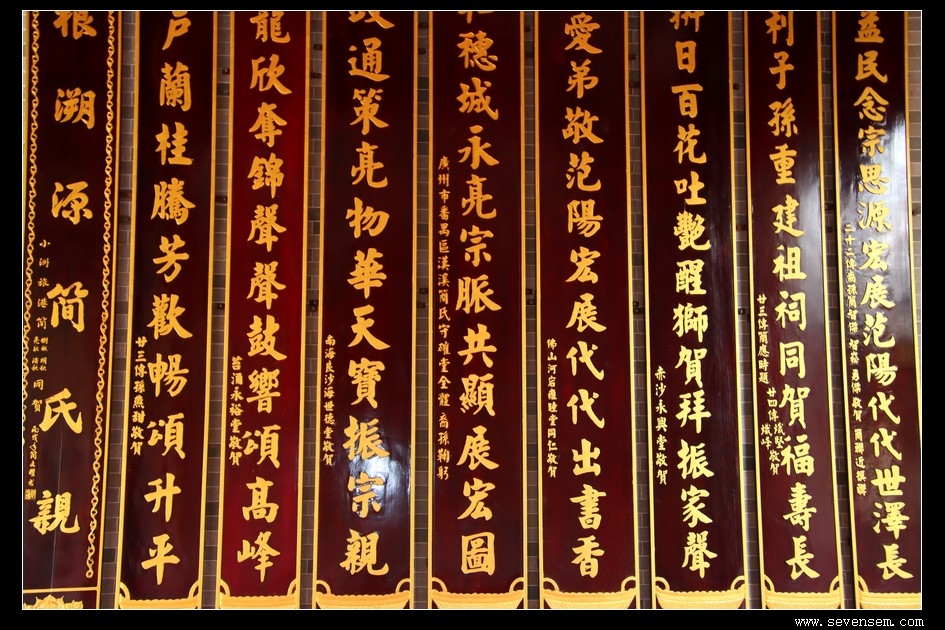 益民念宗思源宏展范陽代代世澤長
利子孫重建祖祠同賀福壽長
廿三傳簡應時題
廿四傳熾堅 熾峰 敬賀
日百花吐艷醒獅賀拜振家聲
赤沙永興堂敬賀
愛弟敬范陽宏展代代出書香
佛山河宕雍睦堂同仁敬賀
穗城永亮宗脈共顯展宏圖
廣州市番禺區漢溪簡氏守確堂全體裔孫鞠躬
通策亮物華天寶振宗親
南海良沙海世德堂敬賀
龍欣奪錦聲聲鼓響頌高峰
苔涌永裕堂敬賀
戶蘭桂騰芳歡暢頌升平
廿三傳孫燕甜敬賀
根溯源简氏親
小洲旅港簡
同賀
www.sevensem.com